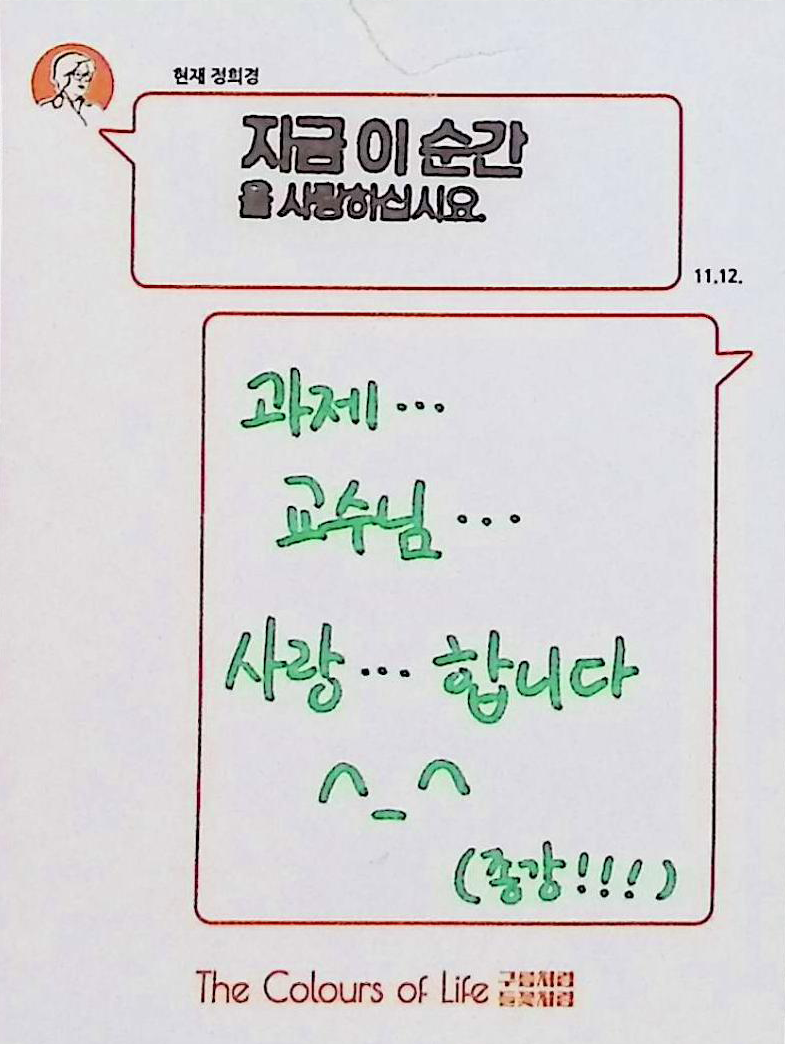 현재 정희경
지금 이 순간
을 사랑하십시요.
11.12.
과제...
교수님...
사랑... 합니다
^_^
(종강!!!)
The Colours of Life 구름처럼
들꽃처럼